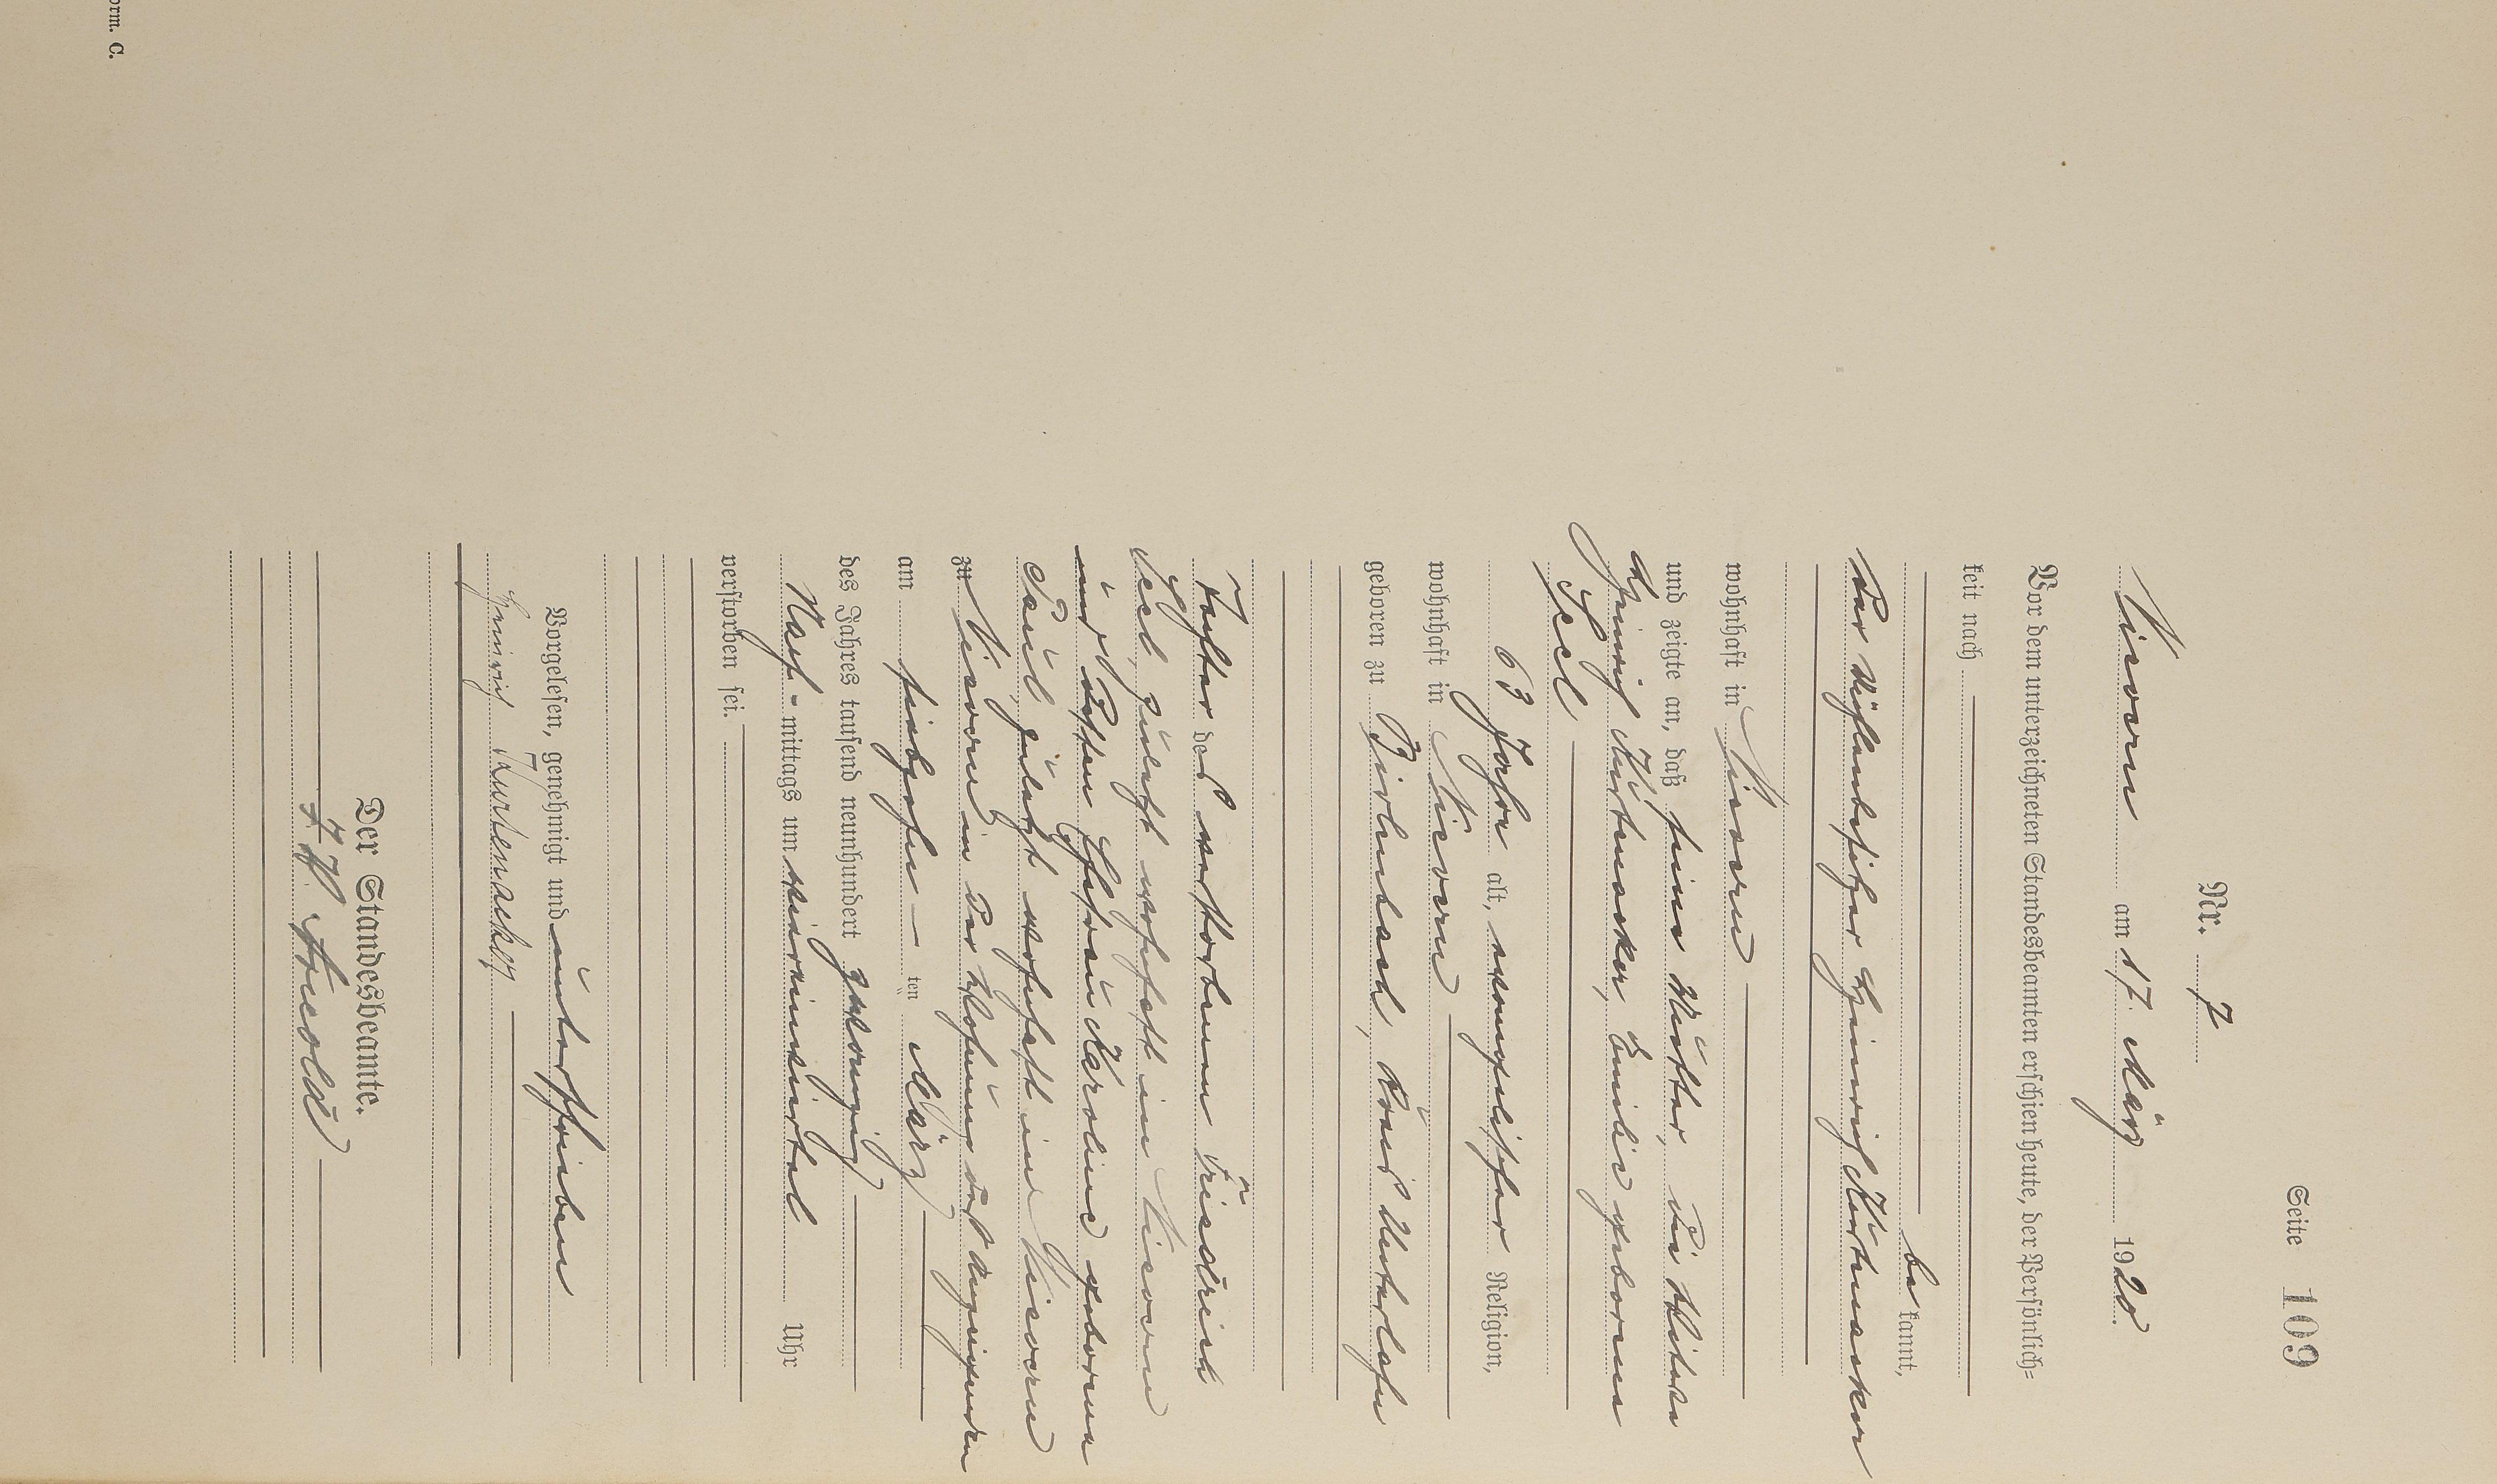 Seite 109
Nr. 7
Nievern am 17. März 1920.
Vor dem unterzeichneten Standesbeamten erschien heute, der Persönlich=
keit nach
be kannt,
der Mühlenbesitzer Heinrich Kurtenacker
wohnhaft in Nievern
und zeigte an, daß seine Mutter, die Witwe
Heinrich Kurtenacker, Emilie geborene
Seel,
63 Jahre alt, evangelischer Religion,
wohnhaft in Nievern
geboren zu Birlenbach, Kreis Unterlahn
Tochter des verstorbenen Friedrich
Seel, zuletzt wohnhaft in Nievern
und dessen Ehefrau Karoline geborene
zuletzt wohnhaft in Nievern
zu Nievern in der Wohnung des Anzeigenden
am siebzehn ten März
des Jahres tausend neunhundert zwanzig
Nach - mittags um vier einviertel Uhr
verstorben sei.
Vorgelesen, genehmigt und unterschrieben
Heinrich Kurtenacker
Der Standesbeamte.
orm. C.